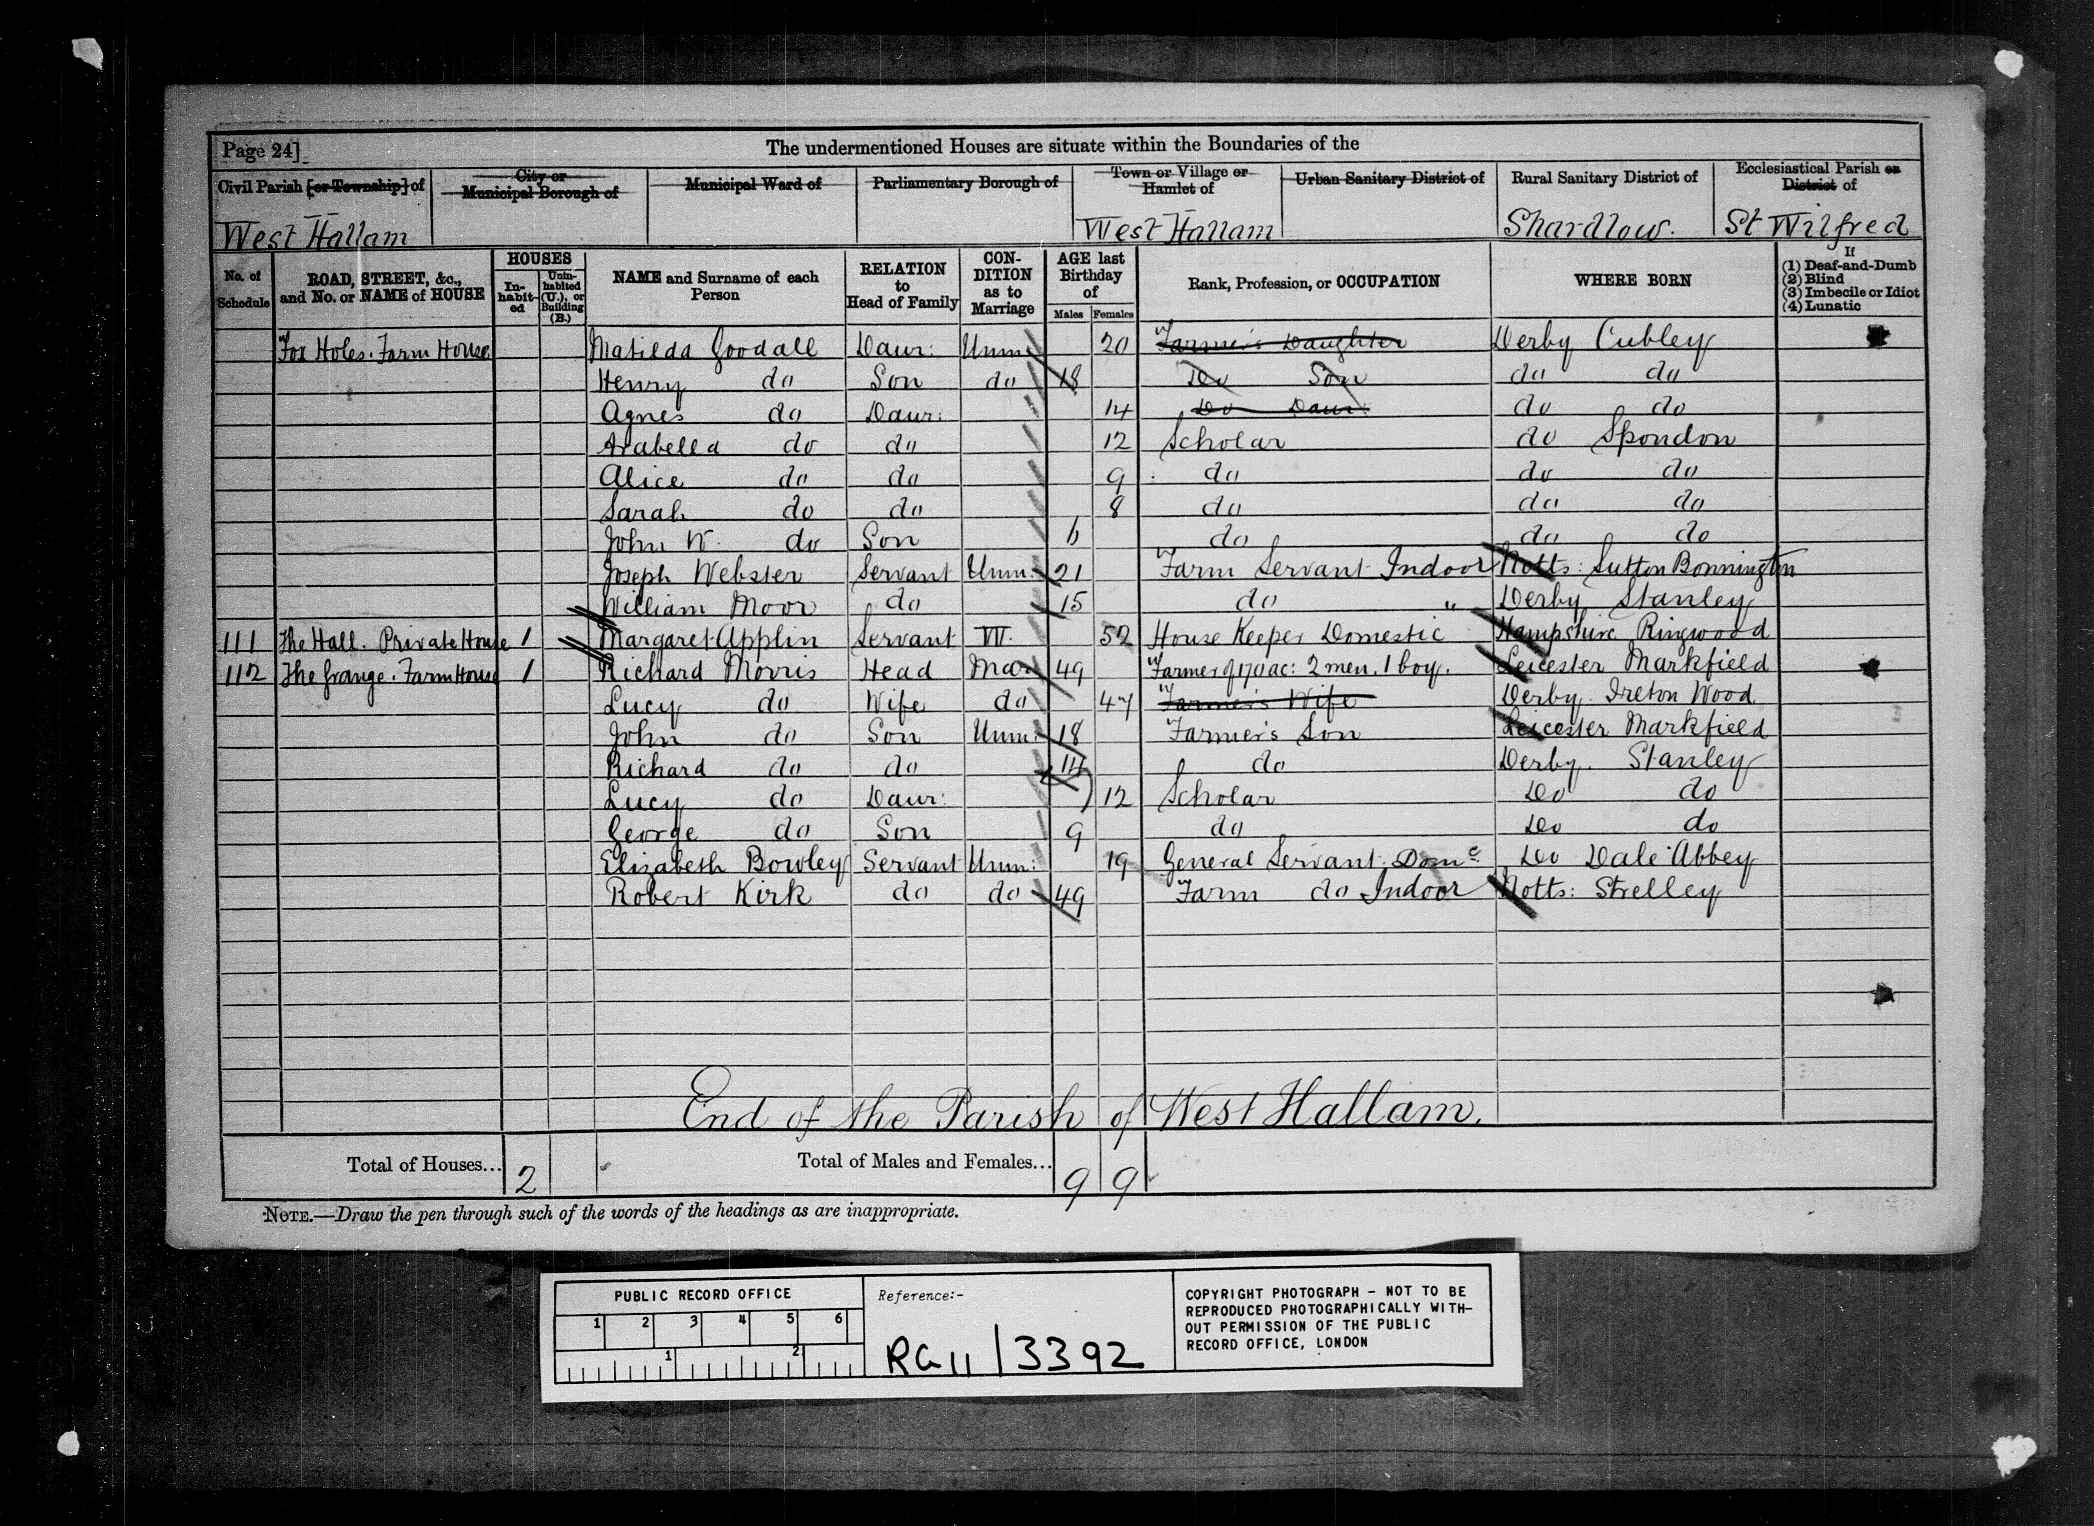 Page 24]
The undermentioned Houses are situate within the Boundaries of the
Civil Parish [or Township] of
City or Municipal Borough of
Municipal Ward of
Parliamentary Borough of
Town or Village or Hamlet of
Urban Sanitary District of
Rural Sanitary District of
Ecclesiastical Parish or District of
West Hallam West Hallam Shardlow. St Wilfred
No. of Schedule
ROAD, STREET, &c., and No. or NAME of HOUSE
HOUSES
In-habit-ed
Unin-habited (U.), or Building (B.)
NAME and Surname of each Person
RELATION to Head of Family
CON-DITION as to Marriage
AGE last Birthday of
Males Females
Rank, Profession, or OCCUPATION
WHERE BORN
If
(1) Deaf-and-Dumb
(2) Blind
(3) Imbecile or Idiot
(4) Lunatic
Fox Holes. Farm House Matilda Goodall Daur: Unm: 20 Farmer's Daughter Derby Cubley
Henry do Son do 18 Do Son do do
Agnes do Daur: 14 Do Daur: do do
Arabella do do 12 Scholar do Spondon
Alice do do 9 do do do
Sarah do do 8 do do do
John W. do Son 6 do do do
Joseph Webster Servant Unm: 21 Farm Servant Indoor Notts: Sutton Bonnington
William Moor do 15 do " Derby Stanley
111 The Hall. Private House 1 Margaret Applin Servant W. 52 House Keeper Domestic Hampshire Ringwood
112 The Grange. Farm House 1 Richard Morris Head Mar 49 Farmer of 170 ac: 2 men. 1 boy. Leicester Markfield
Lucy do Wife do 47 Farmer's Wife Derby. Ireton Wood
John do Son Unm: 18 Farmer's Son Leicester Markfield
Richard do do 14 do Derby. Stanley
Lucy do Daur: 12 Scholar Do do
George do Son 9 do Do do
Elizabeth Bowley Servant Unm: 19 General Servant. Domc Do Dale Abbey
Robert Kirk do do 49 Farm do Indoor Notts: Strelley
End of the Parish of West Hallam.
Total of Houses... 2 Total of Males and Females... 9 9
NOTE.—Draw the pen through such of the words of the headings as are inappropriate.
PUBLIC RECORD OFFICE
1 2 3 4 5 6
1 2
Reference:-
RG 11 / 3392
COPYRIGHT PHOTOGRAPH - NOT TO BE
REPRODUCED PHOTOGRAPHICALLY WITH-
OUT PERMISSION OF THE PUBLIC
RECORD OFFICE, LONDON